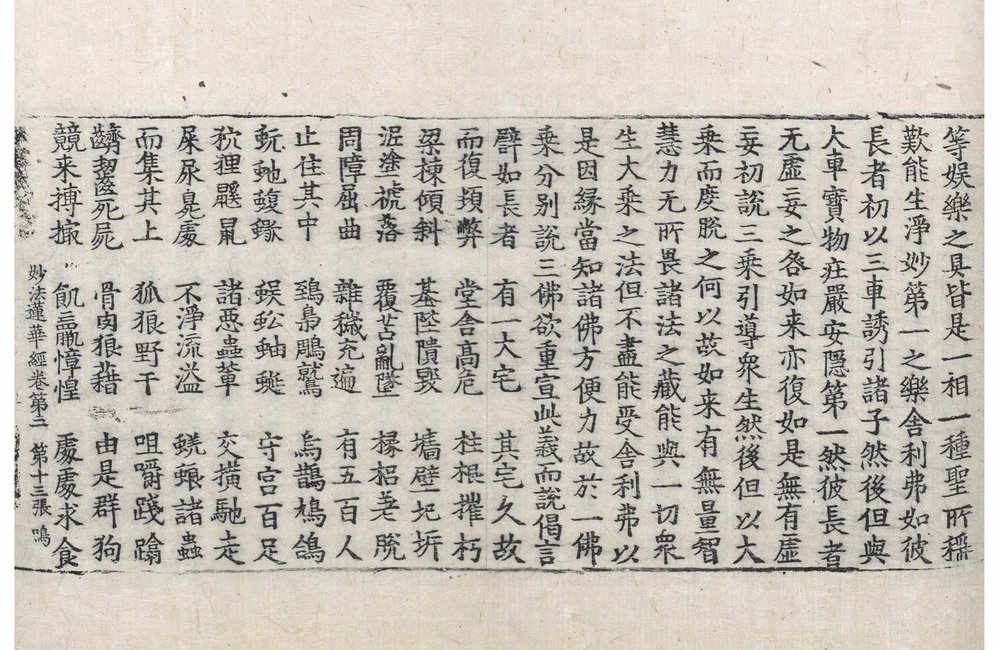 等娛樂之具皆是一相一種聖所稱
歎能生淨妙第一之樂舍利弗如彼
長者初以三車誘引諸子然後但與
大車寶物莊嚴安隱第一然彼長者
无虛妄之咎如来亦復如是無有虛
妄初說三乘引導衆生然後但以大
乘而度脫之何以故如来有無量智
慧力无所畏諸法之藏能與一切衆
生大乘之法但不盡能受舍利弗以
是因緣當知諸佛方便力故於一佛
乘分別說三佛欲重宣此義而說偈言
譬如長者 有一大宅 其宅久故
而復頓弊 堂舍高危 柱根摧朽
梁棟傾斜 基陛隤毀 墻壁圮坼
泥塗褫落 覆苫亂墜 椽梠差脫
周障屈曲 雜穢充遍 有五百人
止住其中 鵄梟鵰鷲 烏鵲鳩鴿
蚖虵蝮蠍 蜈蚣蚰蜒 守宮百足
狖狸鼷鼠 諸惡蟲輩 交橫馳走
屎尿臭處 不淨流溢 蜣蜋諸蟲
而集其上 狐狼野干 咀嚼踐蹋
嚌齧死屍 骨肉狼藉 由是群狗
競来搏撮 飢羸慞惶 處處求食
妙法蓮華經卷第二 第十三張 鳴